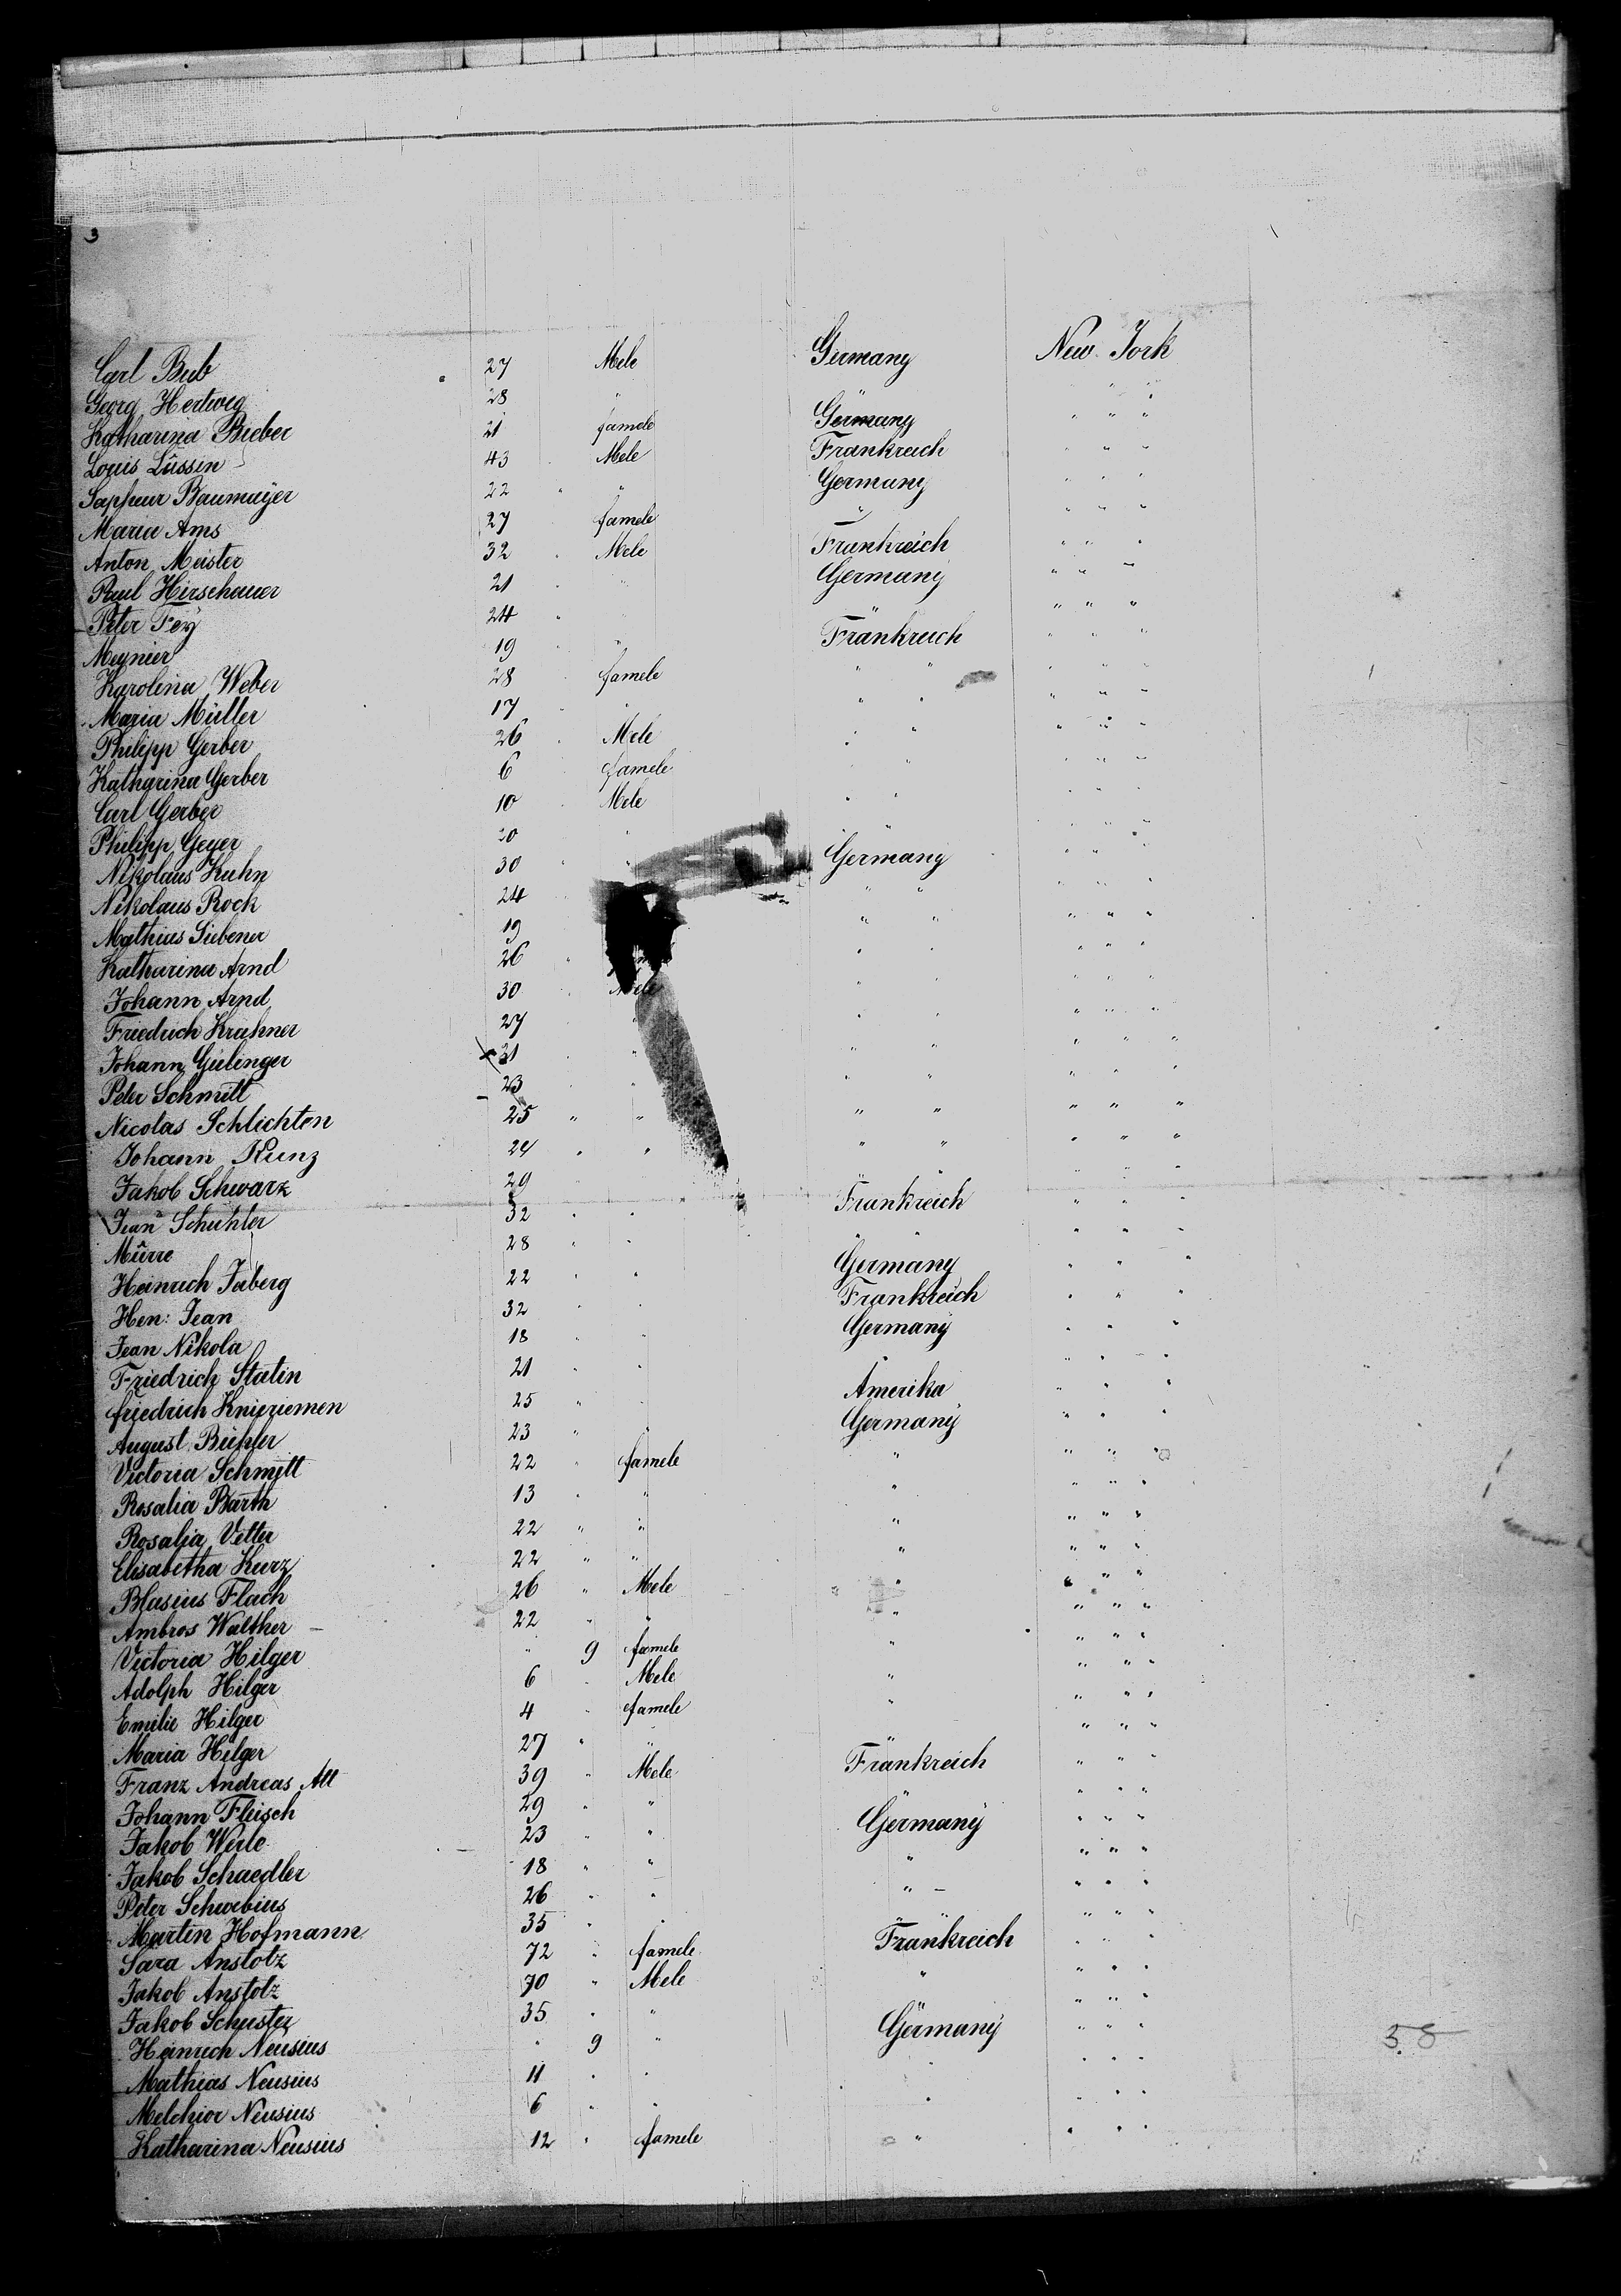 3
Carl Bub 27 Mele Germany New York
Georg Hertweg 28 " " " "
Katharina Bieber 21 famele Germany " " "
Louis Lüssin 43 Mele Frankreich " " "
Sapheur Baumayer 22 " " Germany " " "
Maria Ams 27 famele " " " "
Anton Meister 32 Mele Frankreich " " "
Paul Hirschauer 21 " Germany " " "
Peter Fey 24 " " " " "
Meynier 19 " Frankreich " " "
Karolina Weber 28 famele " " " " "
Maria Müller 17 " " " " " "
Philipp Gerber 26 Mele " " " " "
Katharina Gerber 6 famele " " " "
Carl Gerber 10 Mele " " " " "
Philipp Geyer 20 " " " "
Nikolaus Kuhn 30 " " Germany " " "
Nikolaus Rock 24 " " " " "
Mathias Siebener 19 " " " " "
Katharina Arnd 26 " " " " " "
Johann Arnd 30 Mele " " " " "
Friedrich Krahner 27 " " " " " "
Johann Gielinger 21 " " " " " "
Peter Schmitt 23 " " " " " " "
Nicolas Schlichten 25 " " " " " " "
Johann Kunz 24 " " " " " " "
Jakob Schwarz 29 " " "
Jean Schuhler 32 " " Frankreich " " "
Mürre 28 " " " " " " "
Heinrich Jaberg 22 " " Germany " " "
Hen: Jean 32 " " Frankreich " " "
Jean Nikola 18 " " Germany " " "
Friedrich Statin 21 " " " " "
friedrich Knieriemen 25 " " Amerika " " "
August Bühler 23 " " Germany " " "
Victoria Schmitt 22 " famele " " " "
Rosalia Barth 13 " " " " " "
Rosalia Vetter 22 " " " " " "
Elisabetha Kurz 22 " " " " " "
Blasius Flach 26 " Mele " " " "
Ambros Walther 22 " " " " " "
Victoria Hilger " 9 famele " " " "
Adolph Hilger 6 " Mele " " " "
Emilie Hilger 4 " famele " " " "
Maria Hilger 27 " " " " "
Franz Andreas Alt 39 " Mele Frankreich " " "
Johann Fleisch 29 " " " " "
Jakob Werle 23 " " Germany " " "
Jakob Schaedler 18 " " " " " "
Peter Schwebius 26 " " " " " "
Martin Hofmann 35 " " " " " " "
Sara Anstotz 72 " famele Frankreich " " "
Jakob Anstotz 70 " Mele " " " "
Jakob Schuster 35 " " " " "
Heinrich Neusius " 9 " Germany " " " 58
Mathias Neusius 11 " " " " " "
Melchior Neusius 6 " " " " " "
Katharina Neusius 12 " famele " " " "